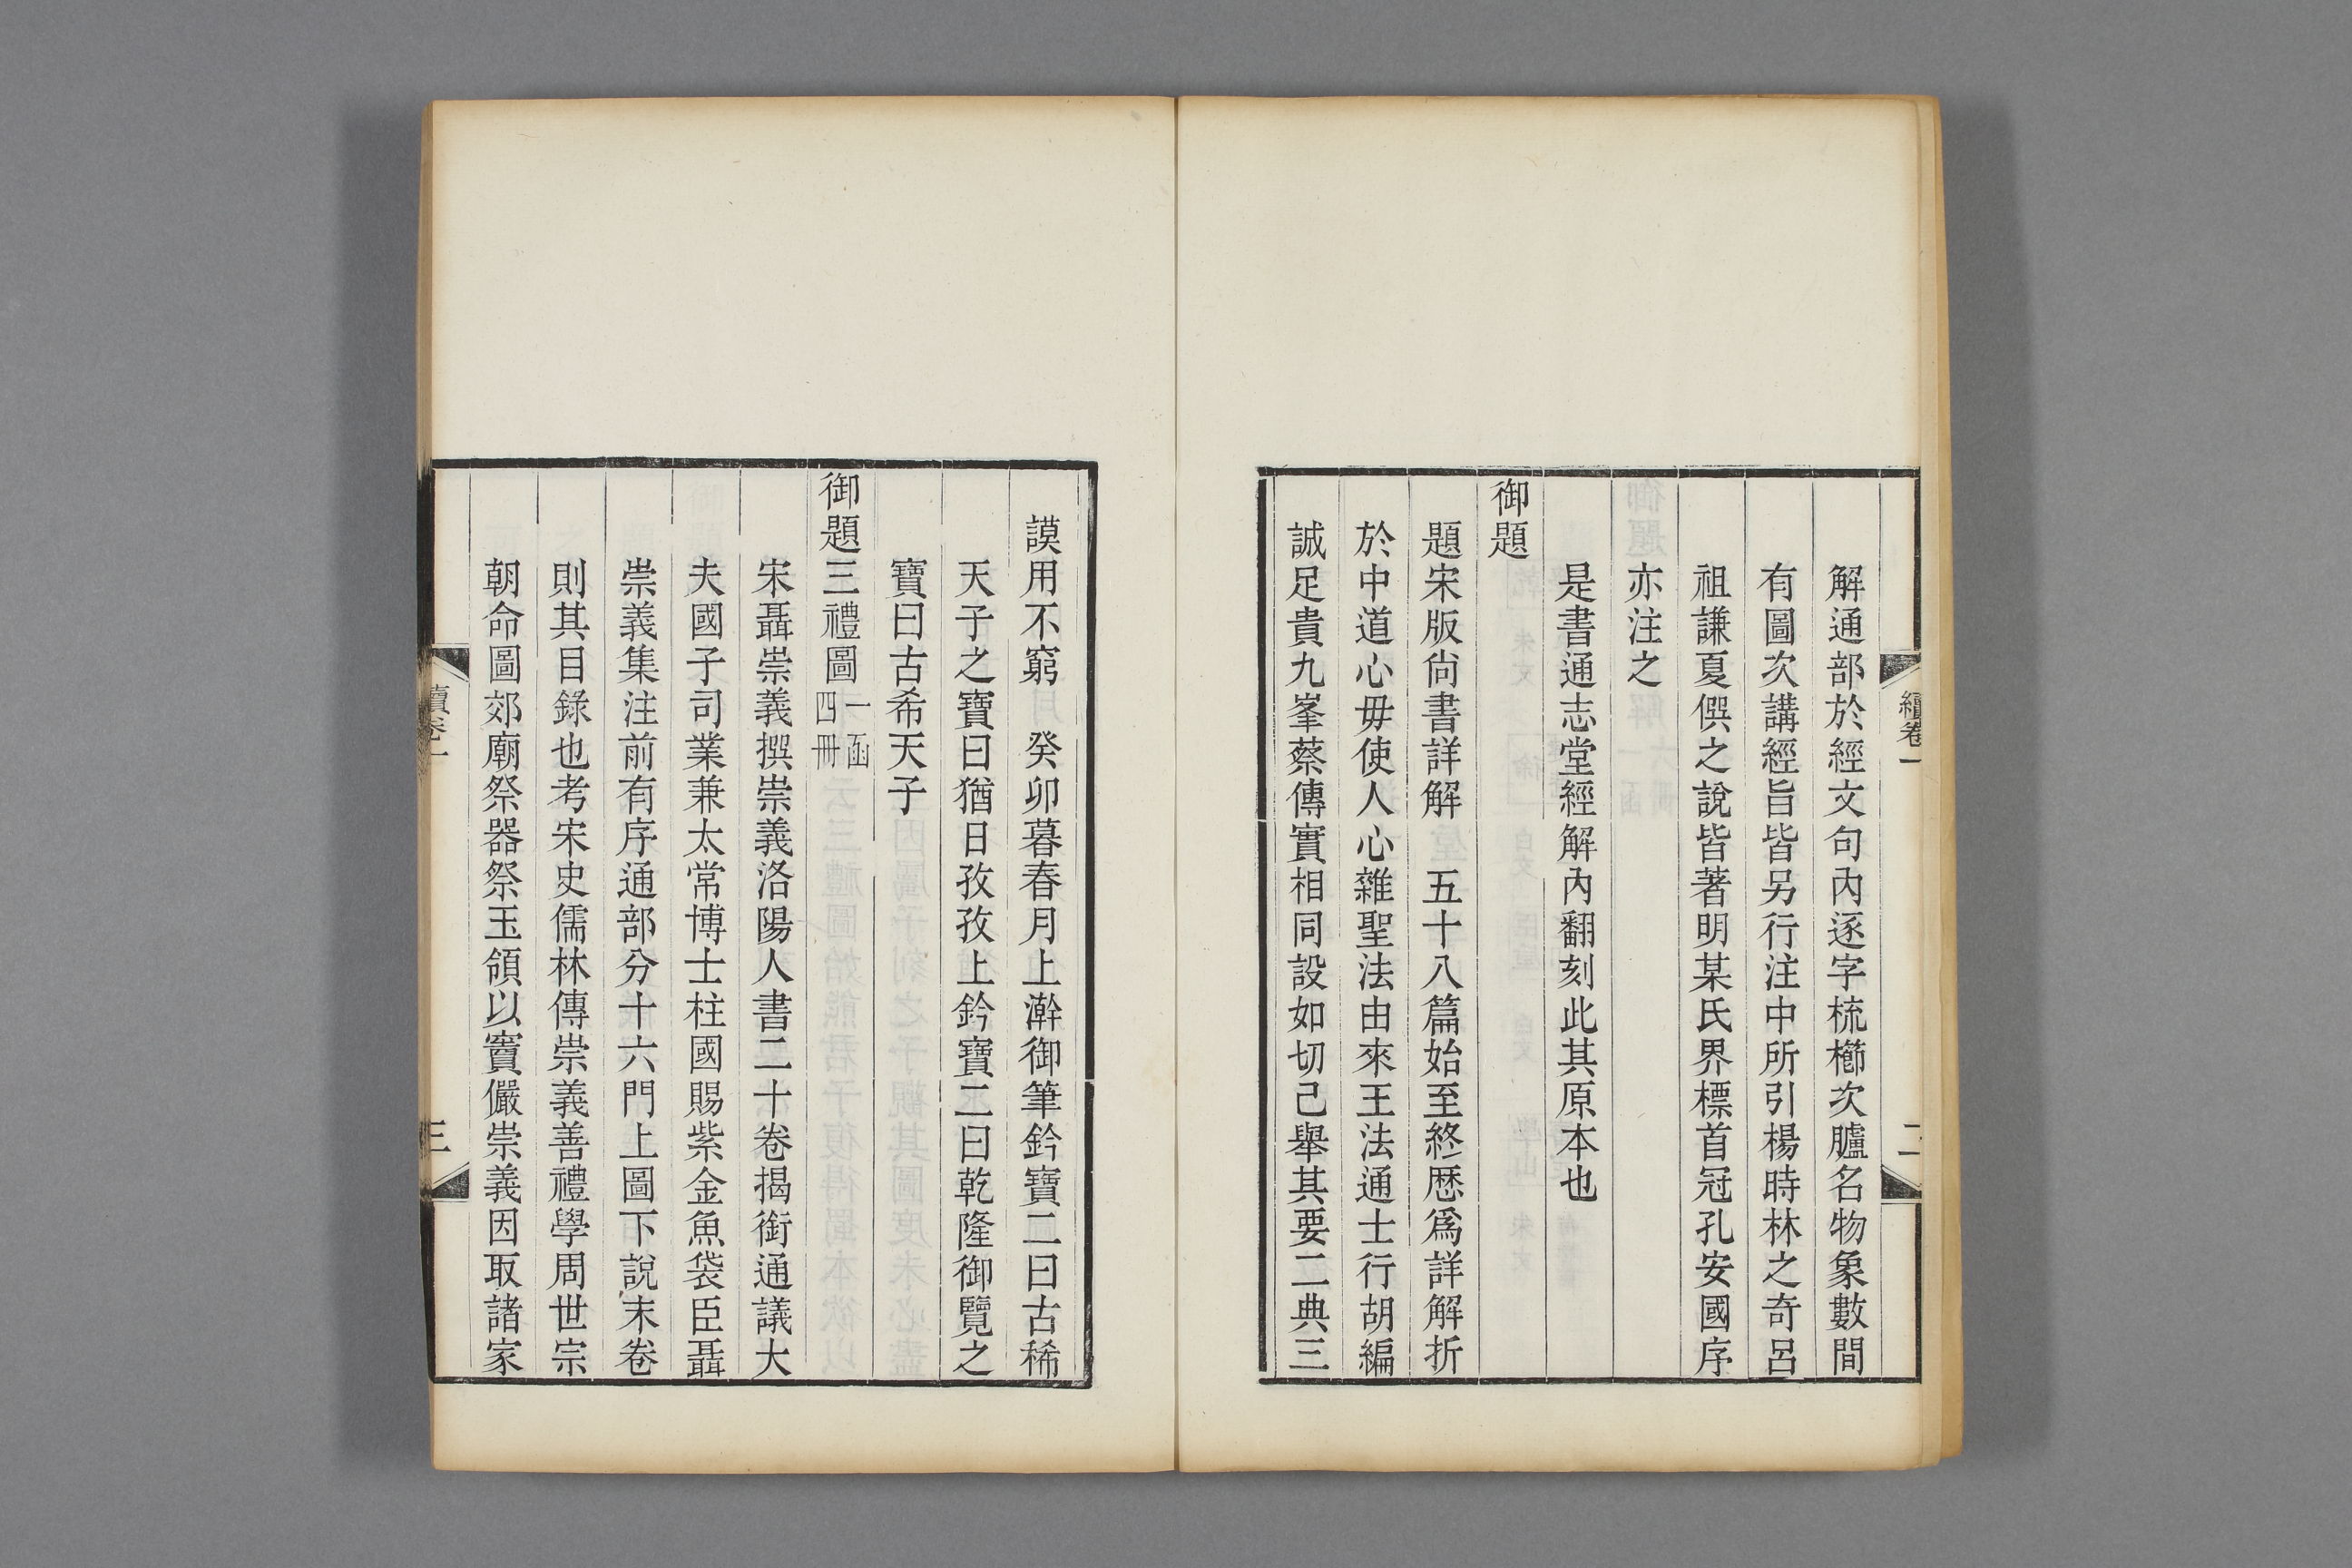 續卷一
二
解通部於經文句內逐字梳櫛次臚名物象數間
有圖次講經旨皆另行注中所引楊時林之奇呂
祖謙夏僎之說皆著明某氏界標首冠孔安國序
亦注之
是書通志堂經解內翻刻此其原本也
御題
題宋版尙書詳解　五十八篇始至終歷爲詳解折
於中道心毋使人心雜聖法由來王法通士行胡編
誠足貴九峯蔡傳實相同設如切己舉其要二典三
謨用不窮　癸卯暮春月上澣御筆鈐寶二曰古稀
天子之寶曰猶日孜孜上鈐寶二曰乾隆御覽之
寶曰古希天子
御題三禮圖一函四冊
宋聶崇義撰崇義洛陽人書二十卷揭銜通議大
夫國子司業兼太常博士柱國賜紫金魚袋臣聶
崇義集注前有序通部分十六門上圖下說末卷
則其目錄也考宋史儒林傳崇義善禮學周世宗
朝命圖郊廟祭器祭玉領以竇儼崇義因取諸家
續卷一
三